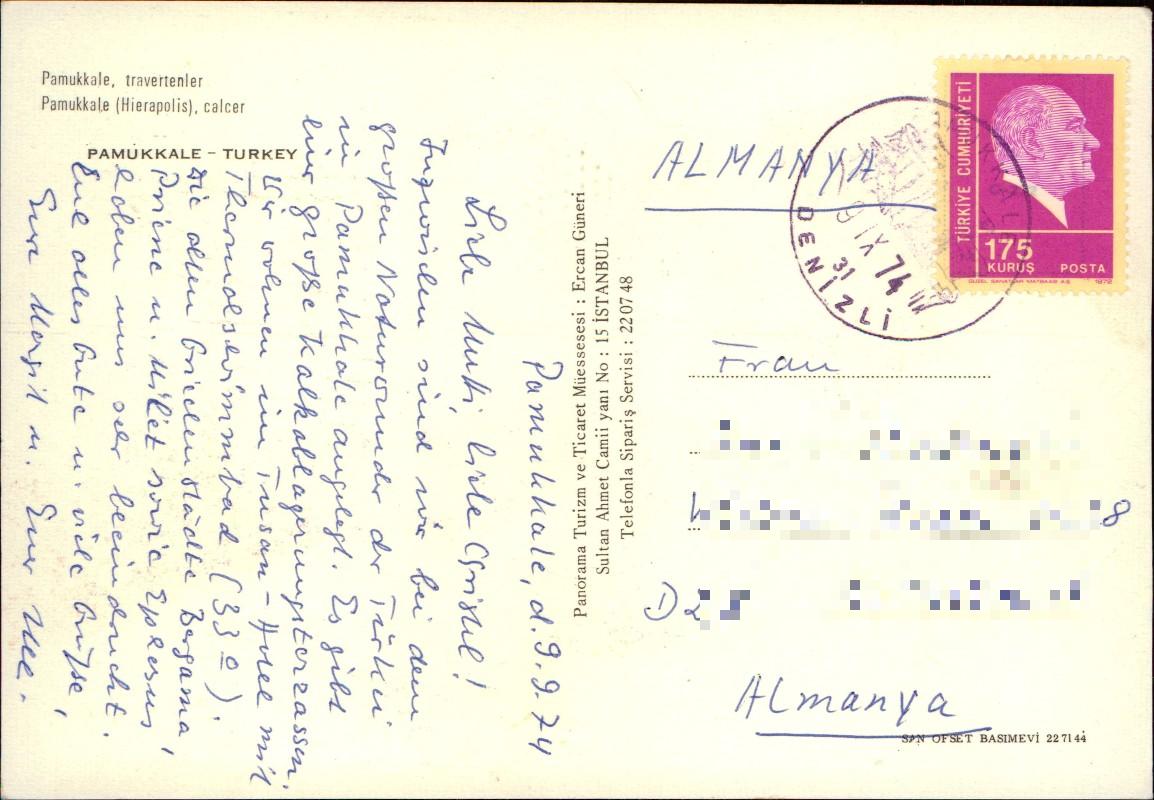 Pamukkale, travertenler
Pamukkale (Hierapolis), calcer
PAMUKKALE - TURKEY
Pamukkale, d. 9.9.74
Liebe Mutti, liebe Christel!
Inzwischen sind wir bei dem
großen Naturwunder der Türkei
in Pamukkale angelegt. Es gibt
hier große Kalkablagerungsterrassen.
Wir wohnen im Tusan-Hotel mit
Thermalschwimmbad (33°)
Die alten Griechenstädte Bergama,
Priene u. Milet sowie Ephesus
haben uns sehr beeindruckt.
Euch alles Gute u. viele Grüße,
Eure Margit u. Euer
Panorama Turizm ve Ticaret Müessesesi : Ercan Güneri
Sultan Ahmet Camii yanı No : 15 İSTANBUL
Telefonla Sipariş Servisi : 22 07 48
ALMANYA
PAMUKKALE
9 IX 74
31
DENİZLİ
TÜRKİYE CUMHURİYETİ
175
KURUŞ POSTA
GÜZEL SANATLAR MATBAASI A.Ş. 1972
Frau
8
D2
Almanya
SAN OFSET BASIMEVİ 22 71 44